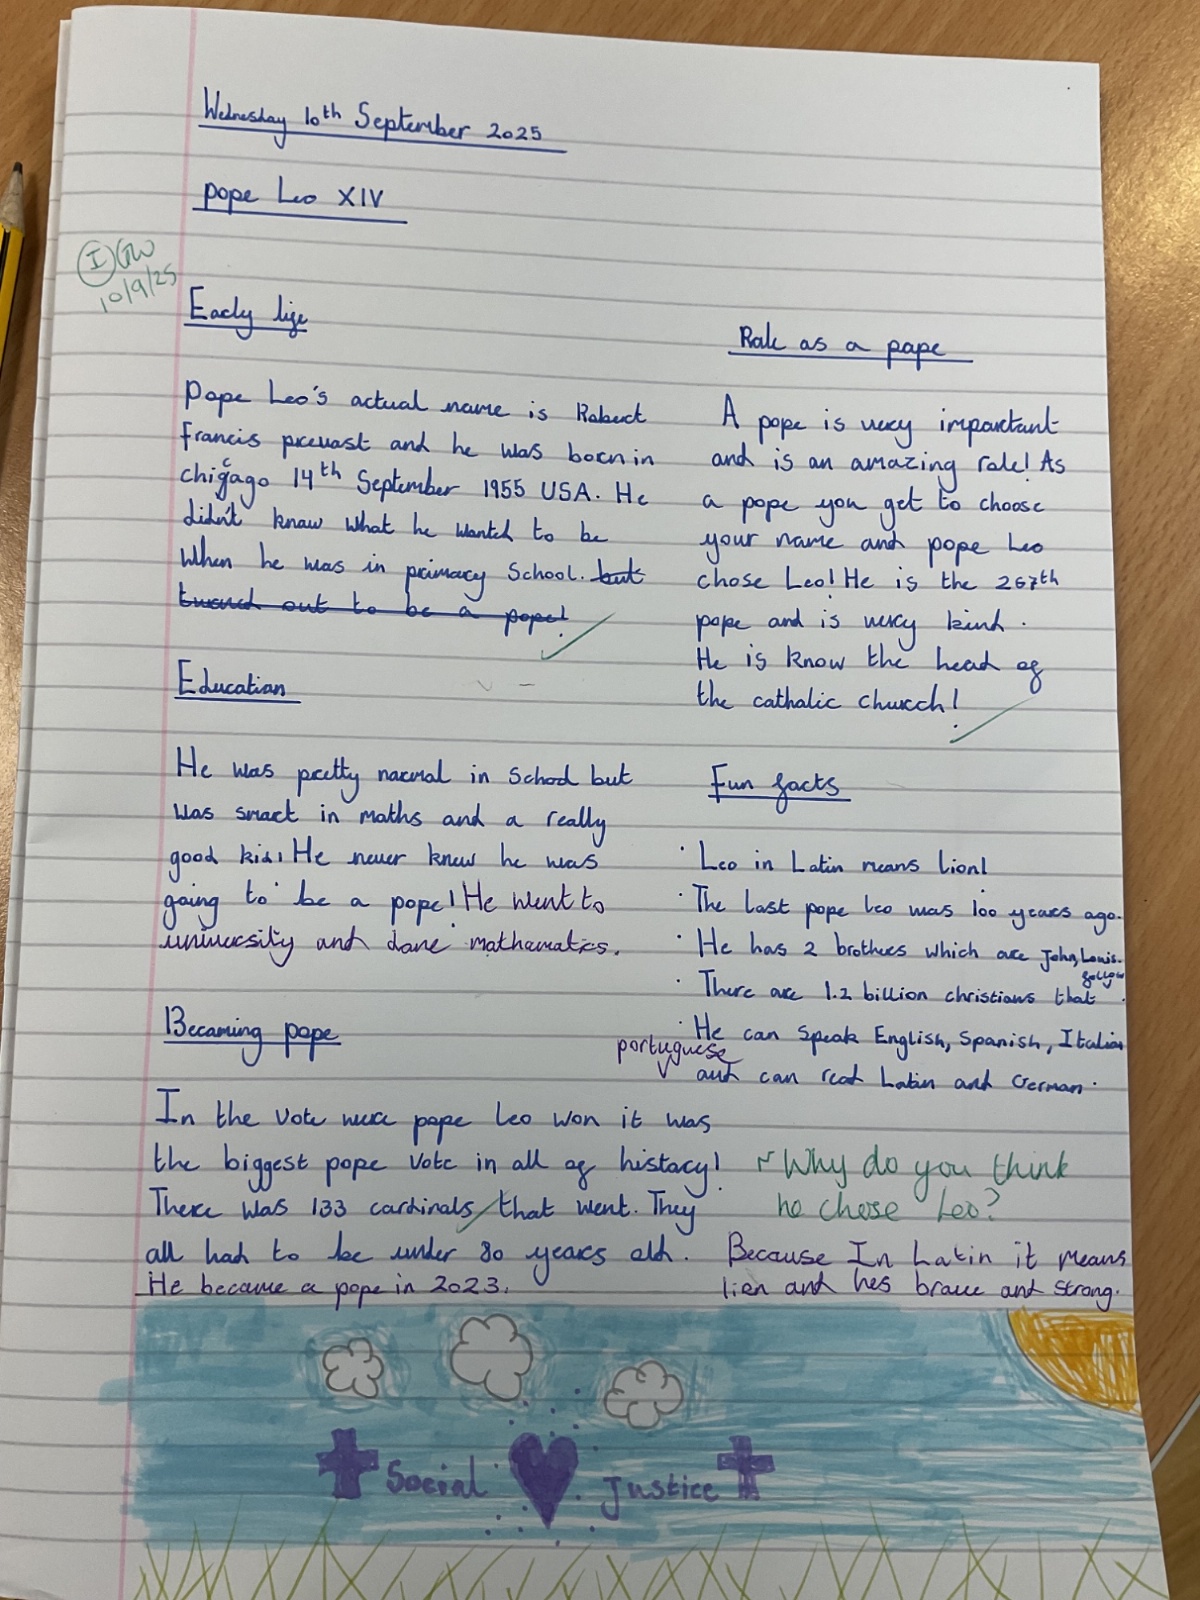 Wednesday 10th September 2025
pope Leo XIV
I GW
10/9/25
Early life
Pope Leo's actual name is Robert
Francis prevost and he was born in
chicago 14th September 1955 USA. He
didn't know what he wanted to be
When he was in primary School. but
turned out to be a pope!
Education
He was pretty normal in School but
was smart in maths and a really
good kid! He never knew he was
going to be a pope! He went to
university and done mathematics.
Becoming pope
In the vote were pope leo won it was
the biggest pope vote in all of history!
There was 133 cardinals that went. They
all had to be under 80 years old.
He became a pope in 2023.
Role as a pope
A pope is very important
and is an amazing role! As
a pope you get to choose
your name and pope Leo
chose Leo! He is the 267th
pope and is very kind.
He is know the head of
the catholic church!
Fun facts
· Leo in Latin means lion!
· The last pope leo was 100 years ago.
· He has 2 brothers which are John, Louis.
· There are 1.2 billion christians that follow.
· He can speak English, Spanish, Italian
portuguese
and can read Latin and German.
Why do you think
he chose Leo?
Because In Latin it means
lion and hes brave and strong.
Social Justice